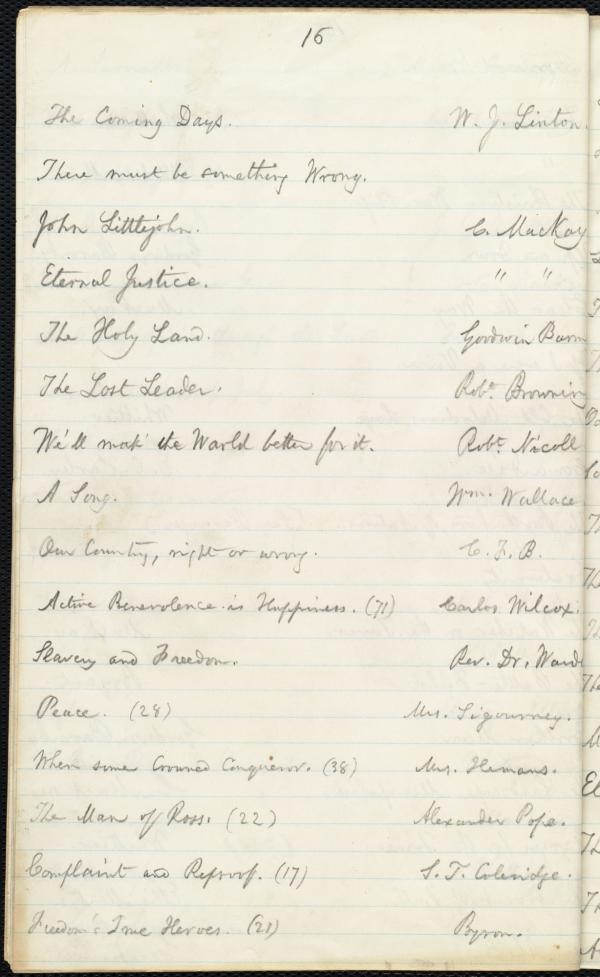 16
The Coming Days. W. J. Linton.
There must be something Wrong.
John Littlejohn. C. MacKay
Eternal Justice. " "
The Holy Land. Goodwin Barm
The Lost Leader. Robt. Browning
We'll mak' the World better for it. Robt. Nicoll
A Song. Wm. Wallace
Our Country, right or wrong. C. F. B.
Active Benevolence is Happiness. (71) Carlos Wilcox.
Slavery and Freedom. Rev. Dr. Ward
Peace. (28) Mrs. Sigourney.
When some Crowned Conqueror. (38) Mrs. Hemans.
The Man of Ross. (22) Alexander Pope.
Complaint and Reproof. (17) S. T. Coleridge.
Freedom's True Heroes. (21) Byron.